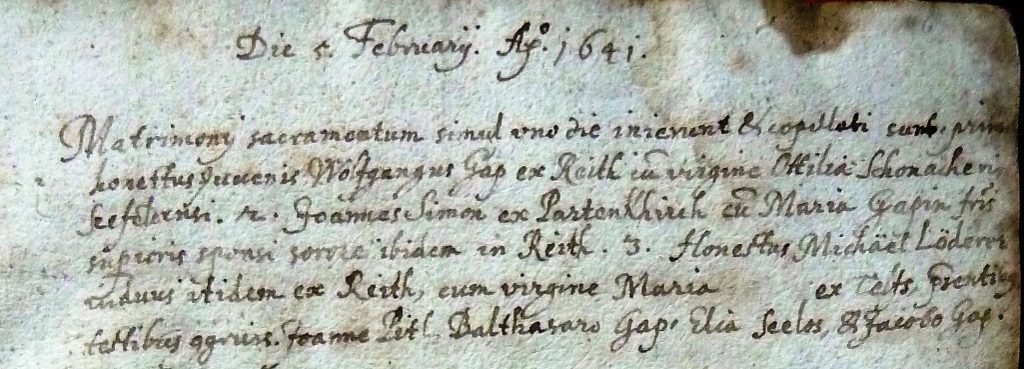 Die 5. Februarij. Aº. 1641.
Matrimonij sacramentum simul vno die inierunt & copulati sunt. prim
honestus Juvenis Wolfgangus Gap ex Reith cū virgine Ottilia Schonacherin
seefeldensi. 2. Joannes Simon ex Partenkhirch cū Maria Gapin
superioris sponsi sorore ibidem in Reith. 3. Honestus Michäel Löderer
viduus itidem ex Reith, cum virgine Maria ex Telfs
testibus Joanne Pitl, Balthasaro Gap, Elia Seelos, & Jacobo Gap.